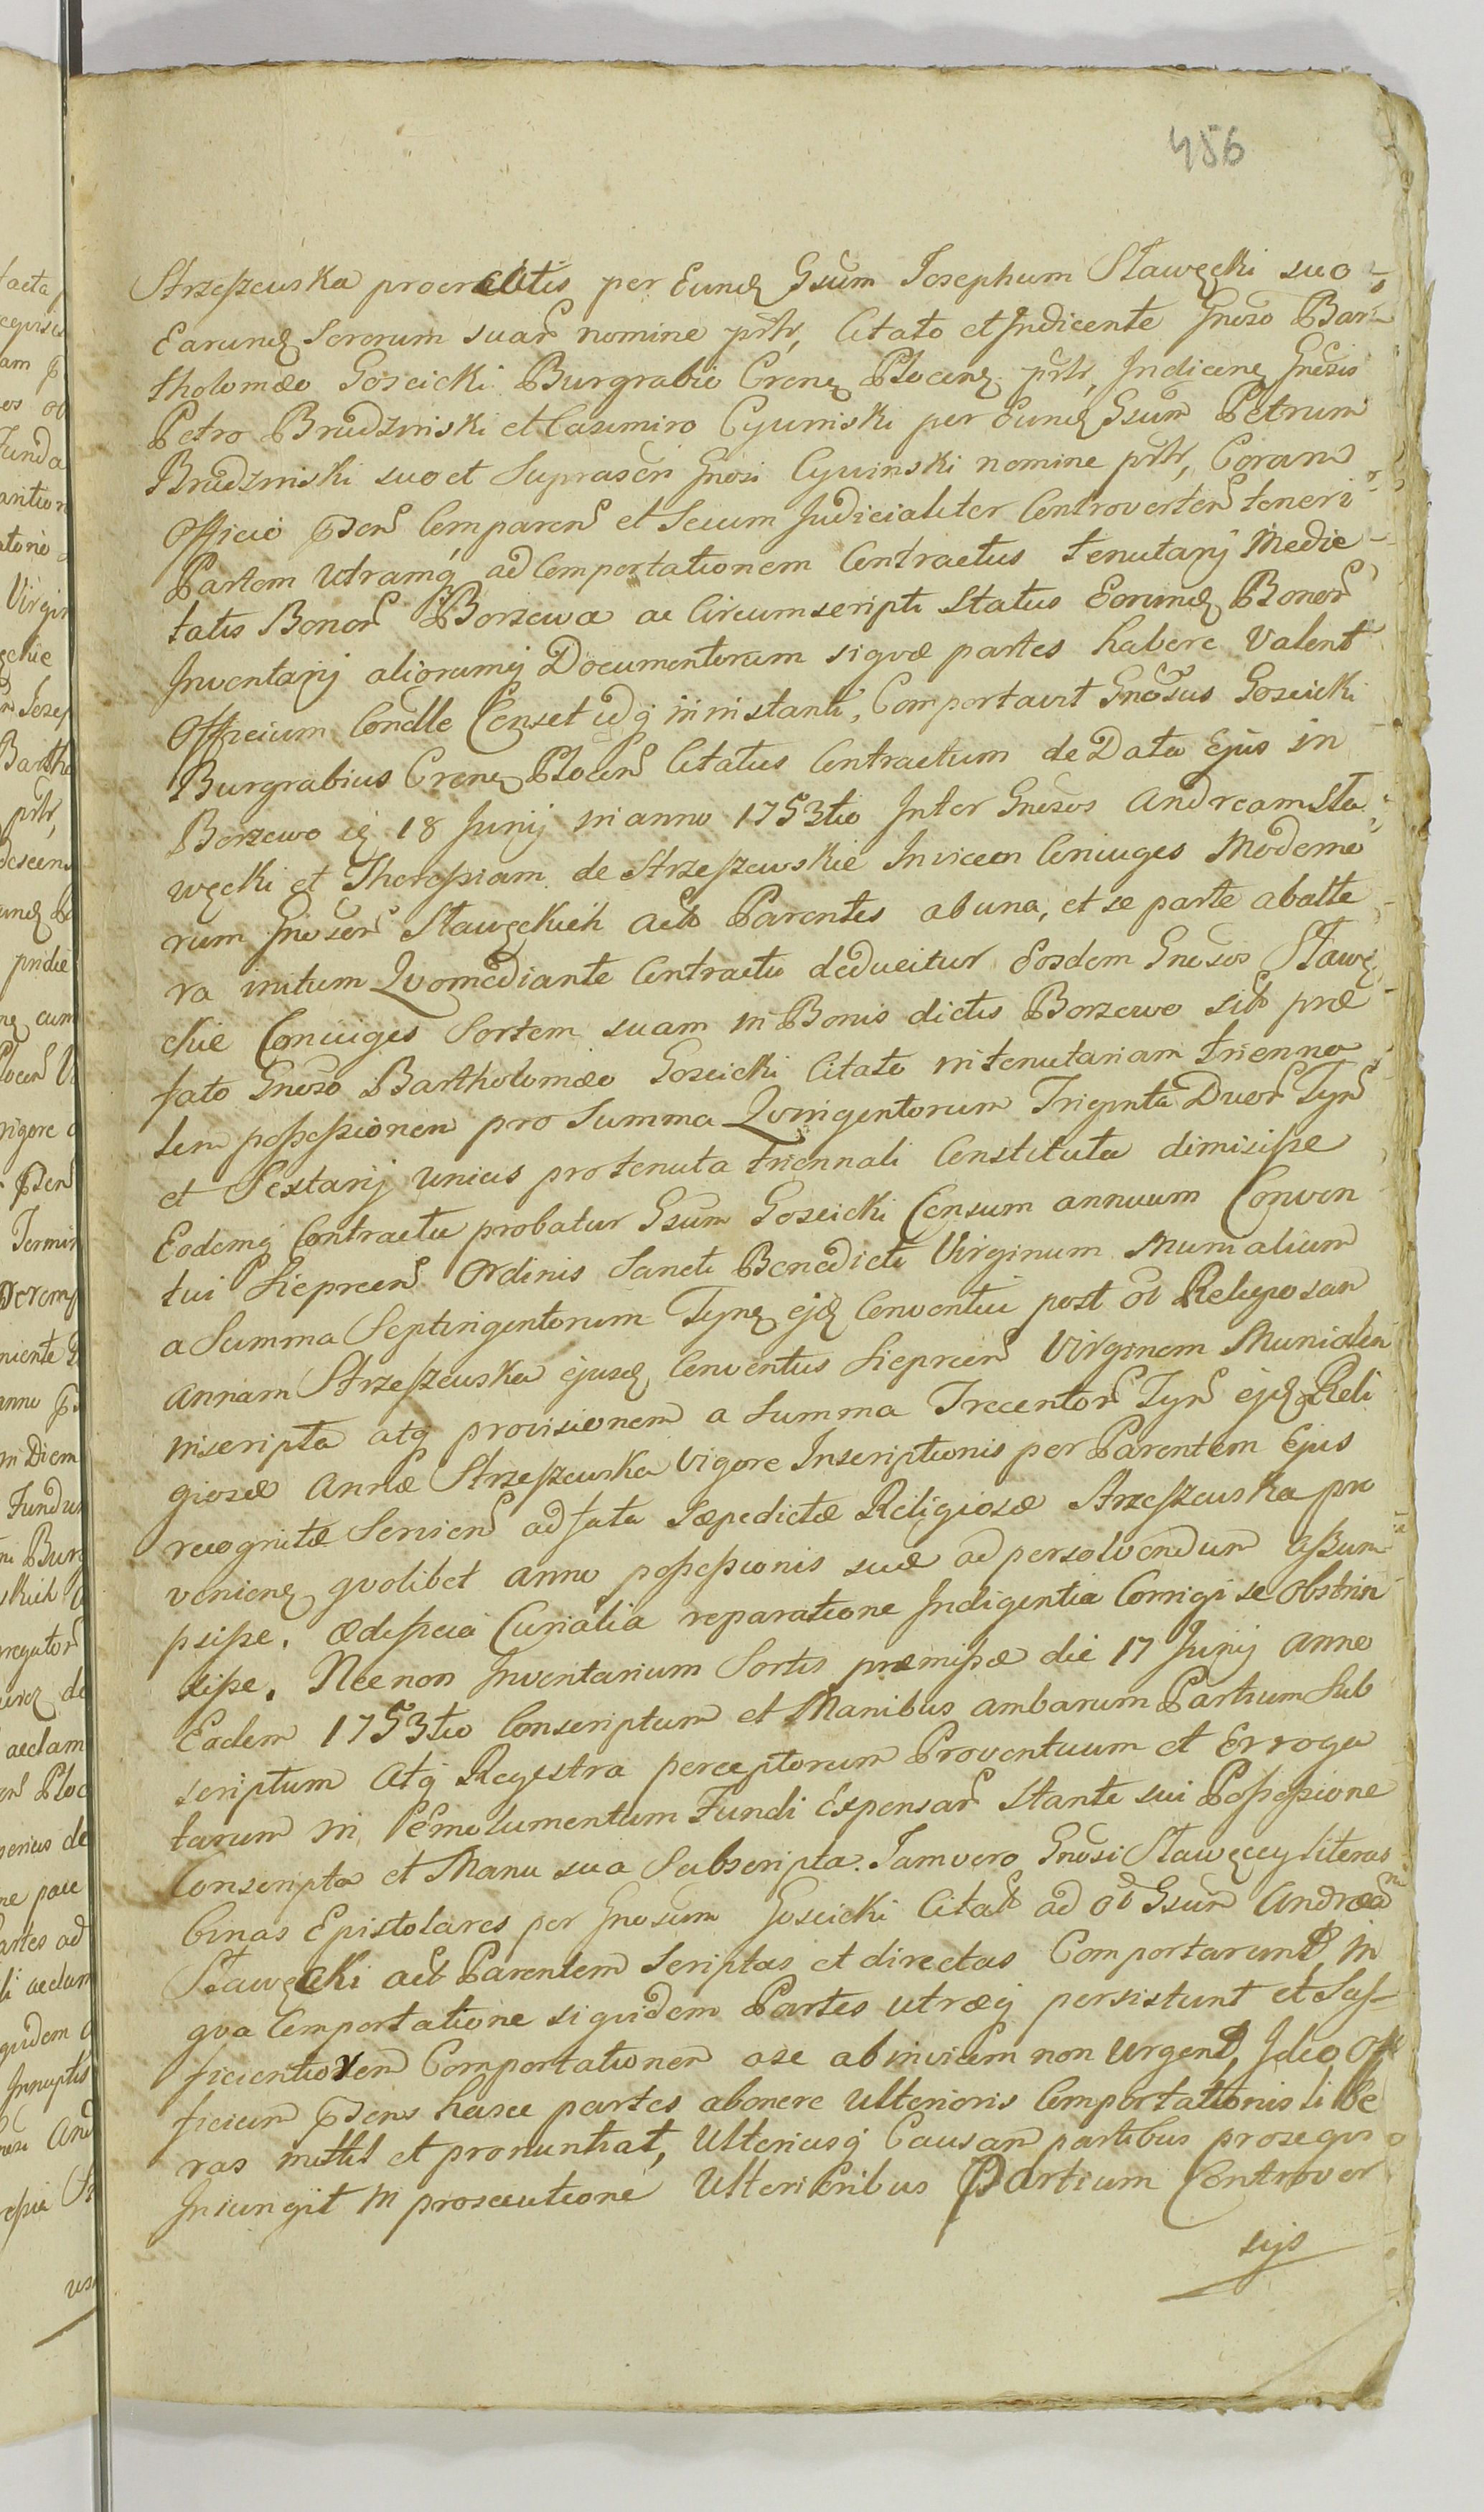 456
Strzeszewska procreatis per Eund Gsum Josephum Sławęcki suo
Earund Sororum suar nomine prtr, Citato et Judicente Gnoso Bar
tholomæo Goscicki Burgrabio Crenz Plocenz prtr, Indicenz Gnosis
Petro Brudzinski et Casimiro Cywinski per Eund Gsum Petrum
Brudzinski suo et Suprascri Gnosi Cywinski nomine prtr, Coram
Officio pden Comparen et Secum Judicialiter Controverten teneri
Partem Utramq ad Comportationem Contractus tenutarij Medie
tatis Bonor Borzewa ac Circumscripti Status Eorund Bonor
Inventarij aliorumq Documentorum si quæ partes habere Valent
Officium Condlle Censet idq in instanti, Comportavit Gnosus Goscicki
Burgrabius Crenz Plocen Citatus Contractum de Data Ejus in
Borzewo ię 18 Junij in anno 1753tio Inter Gnosos Andream Sła
węcki et Theressiam de Strzeszewskie Invicem Coniuges Moderno
rum Gnosor Sławęckich actt Parentes ab una, et se parte ab alte
ra initum Quo mediante Contractu deducitur Eosdem Gnosos Sławę
ckie Coniuges Sortem suam in Bonis dictis Borzewo sitt præ
fato Gnoso Bartholomæo Goscicki Citato in tenutariam trienna
lem possessionem pro Summa Quingentorum Triginta Duor Tynr
et Sextarij unius pro tenuta triennali Constituta dimisisse
Eodemq Contractu probatur Gsum Goscicki Censum annuum Conven
tui Sieprcen Ordinis Sancti Benedicti Virginum Munialium
a Summa Septingentorum Tynz ejd Conventui post ol Religiosam
Annam Strzeszewska ejusd Conventus Sieprcen Virginem Munialem
inscripta atq provisionem a Summa Trecentor Tynr ejd Reli
giosæ Annæ Strzeszewska Vigore Inscriptionis per Parentem Ejus
recognitæ Servien ad fata Sæpedictæ Religiosæ Strzeszewska pro
venienz quolibet anno possessionis suæ ad persolvendum assum
psisse. ædificia Curialia reparatione Indigentia Corrigi se obstrin
xisse. Nec non Inventarium Sortis præmissæ die 17 Junij anno
Eodem 1753tio Conscriptum et Manibus ambarum Partium Sub
scriptum Atq Regestra perceptorum Proventuum et Erroga
tarum in Emolumentum Fundi Expensar Stante sui Possessione
Conscripta et Manu sua Subscripta. Jam vero Gnosi Sławęccy literas
binas Epistolares per Gnosum Goscicki Citatt ad ol Gsum Andreæam
Sławęcki actt Parentem Scriptas et directas Comportarunt, in
qua Comportatione siquidem Partes utræq persistunt et Suf-
ficientiorem Comportationem a se ab invicem non urgent, Ideo Of
ficium pdens hasce partes ab onere Ulterioris Comportationis libe
ras mittit et pronuntiat, Ulteriusq Causam partibus prosequi
Iniungit in prosecutione Ulterioribus Partium Controver
sijs